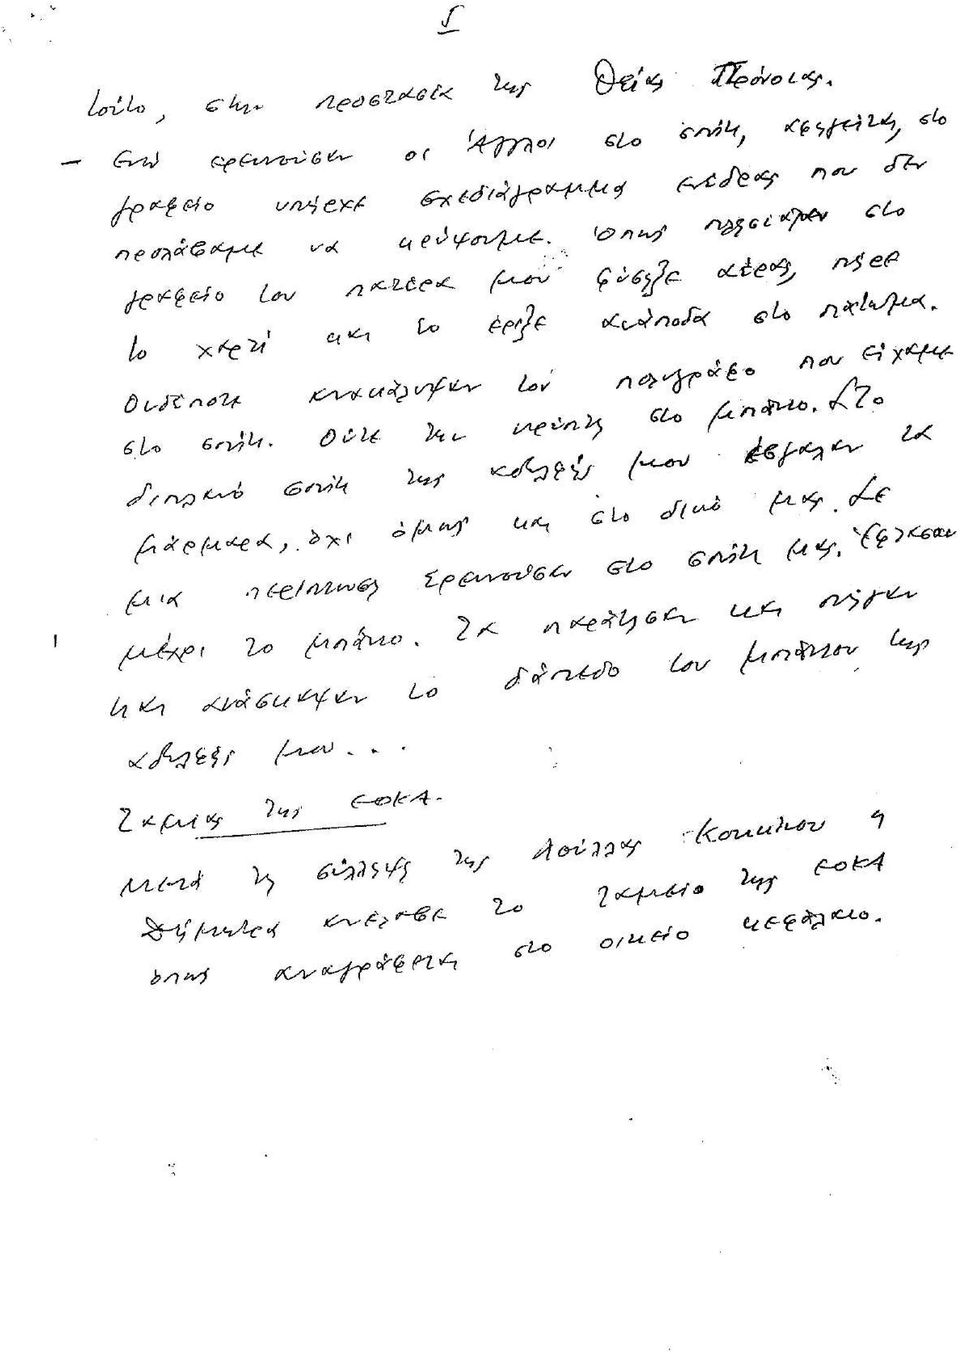 5
τούτο, στην προστασία της Θείας Πρόνοιας.
— Ενώ ερευνούσαν οι Άγγλοι στο σπίτι, στο
γραφείο υπήρχε σχεδιάγραμμα ενέδρας που δεν
προλάβαμε να κρύψουμε. Όπως πλησίαζαν στο
γραφείο του πατέρα μου φύσηξε αέρας, πήρε
το χαρτί και το έριξε ανάποδα στο πάτωμα.
Ουδέποτε ανακάλυψαν τον πολυγράφο που είχαμε
στο σπίτι. Ούτε την κρύπτη στο μπάνιο. Στο
διπλανό σπίτι της αδελφής μου έβγαλαν τα
μάρμαρα, όχι όμως και στο δικό μας. Σε
μια περίπτωση ερευνούσαν στο σπίτι μας. Έφτασαν
μέχρι το μπάνιο. Τα παράτησαν και πήγαν
και ανάσκαψαν το δάπεδο του μπάνιου της
αδελφής μου...
Ταμίας της ΕΟΚΑ.
Μετά τη σύλληψη της Λούλλας Κοκκίνου η
Δήμητρα ανέλαβε το Ταμείο της ΕΟΚΑ
όπως αναγράφεται στο οικείο κεφάλαιο.